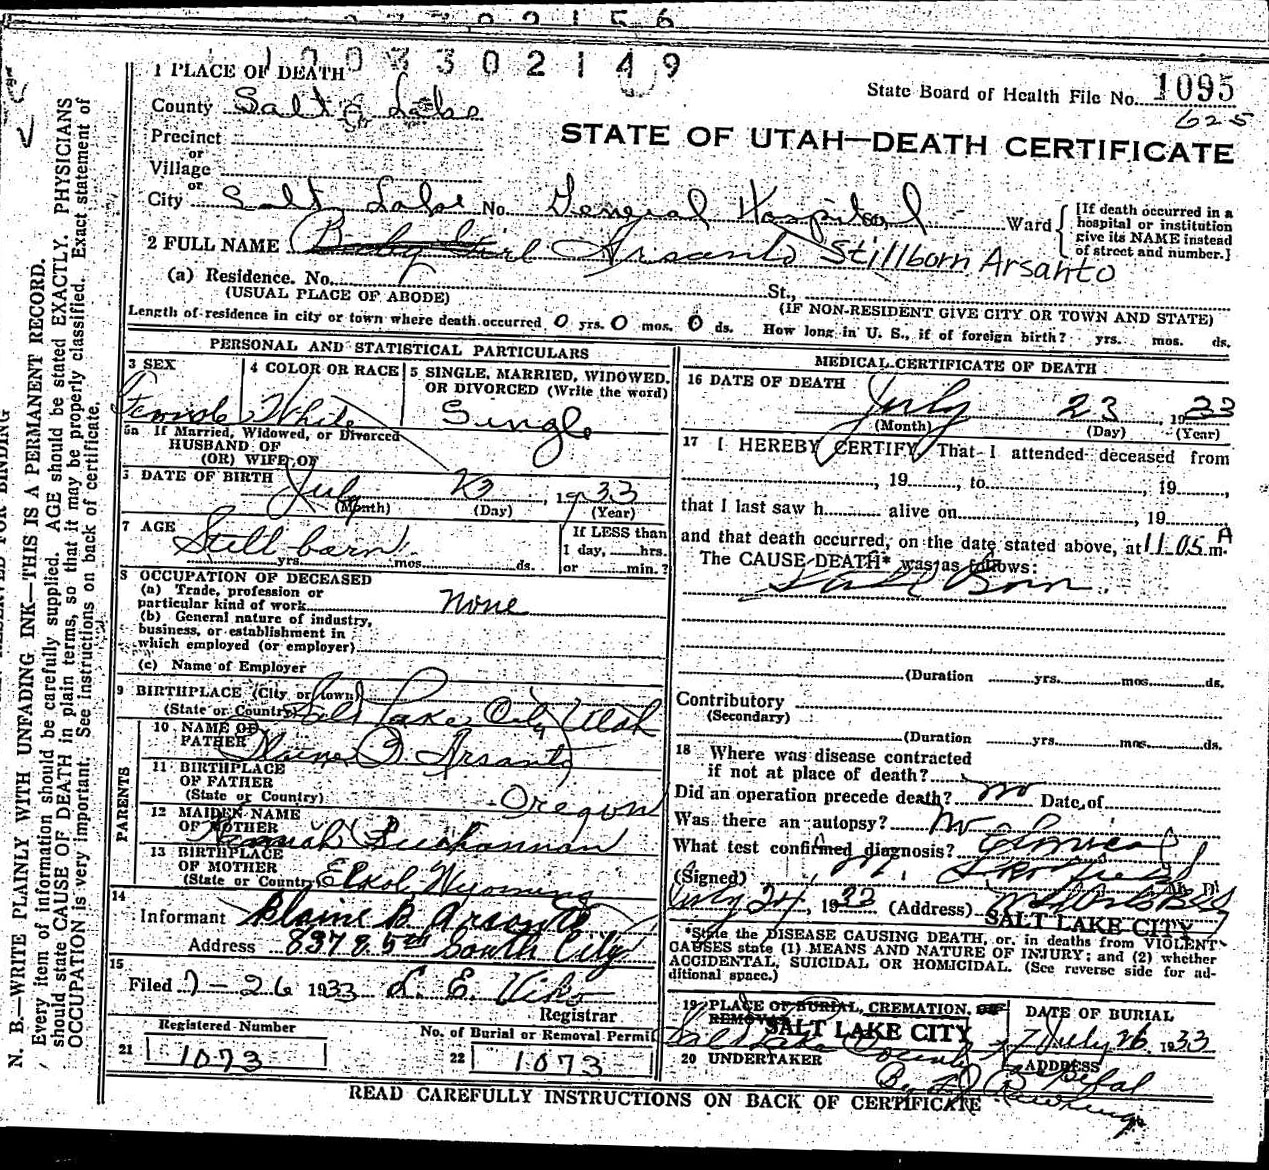 1003302149
1 PLACE OF DEATH
State Board of Health File No. 1095
625
County Salt Lake
STATE OF UTAH—DEATH CERTIFICATE
Precinct
or
Village
or
City Salt Lake No. General Hospital Ward
[If death occurred in a
hospital or institution
give its NAME instead
of street and number.]
2 FULL NAME Baby Girl Arsanto Stillborn Arsanto
(a) Residence. No. St.,
(USUAL PLACE OF ABODE) (IF NON-RESIDENT GIVE CITY OR TOWN AND STATE)
Length of residence in city or town where death occurred 0 yrs. 0 mos. 0 ds. How long in U. S., if of foreign birth? yrs. mos. ds.
PERSONAL AND STATISTICAL PARTICULARS
3 SEX
Female
4 COLOR OR RACE
White
5 SINGLE, MARRIED, WIDOWED,
OR DIVORCED (Write the word)
Single
5a If Married, Widowed, or Divorced
HUSBAND OF
(OR) WIFE OF
6 DATE OF BIRTH July 23, 1933
(Month) (Day) (Year)
7 AGE Still born
yrs. mos. ds.
If LESS than
1 day, hrs.
or min.?
8 OCCUPATION OF DECEASED
(a) Trade, profession or
particular kind of work none
(b) General nature of industry,
business, or establishment in
which employed (or employer)
(c) Name of Employer
9 BIRTHPLACE (City or town)
(State or Country) Salt Lake City Utah
PARENTS
10 NAME OF
FATHER Blaine B. Arsanto
11 BIRTHPLACE
OF FATHER
(State or Country) Oregon
12 MAIDEN NAME
OF MOTHER Hannah Buchannan
13 BIRTHPLACE
OF MOTHER
(State or Country) Elkol, Wyoming
14
Informant Blaine B. Arsanto
Address 837 E. 5th South City
15
Filed 7-26 1933 L. E. Viko
Registrar
Registered Number
21 1073
No. of Burial or Removal Permit
22 1073
MEDICAL CERTIFICATE OF DEATH
16 DATE OF DEATH
July 23, 1933
(Month) (Day) (Year)
17 I HEREBY CERTIFY, That I attended deceased from
, 19 , to , 19 ,
that I last saw h alive on , 19
and that death occurred, on the date stated above, at 11.05 A m.
The CAUSE DEATH* was as follows:
Still Born.
(Duration yrs. mos. ds.
Contributory
(Secondary)
(Duration yrs. mos. ds.
18 Where was disease contracted
if not at place of death?
Did an operation precede death? no Date of
Was there an autopsy? No
What test confirmed diagnosis? Clinical
(Signed) M. , M. D.
July 24, 1933 (Address)
SALT LAKE CITY
*State the DISEASE CAUSING DEATH, or, in deaths from VIOLENT
CAUSES state (1) MEANS AND NATURE OF INJURY; and (2) whether
ACCIDENTAL, SUICIDAL OR HOMICIDAL. (See reverse side for ad-
ditional space.)
19 PLACE OF BURIAL, CREMATION, OR
REMOVAL
SALT LAKE CITY
DATE OF BURIAL
July 26, 1933
20 UNDERTAKER
Salt Lake County
By
ADDRESS
READ CAREFULLY INSTRUCTIONS ON BACK OF CERTIFICATE
N. B.—WRITE PLAINLY WITH UNFADING INK—THIS IS A PERMANENT RECORD.
Every item of information should be carefully supplied. AGE should be stated EXACTLY. PHYSICIANS
should state CAUSE OF DEATH in plain terms, so that it may be properly classified. Exact statement of
OCCUPATION is very important. See instructions on back of certificate.